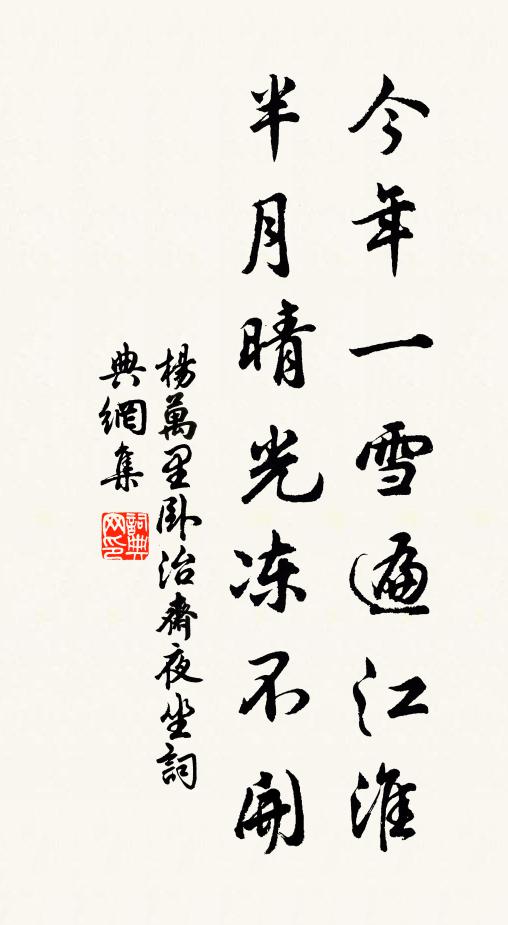 今年一雪遍江淮
半月晴光冻不開
楊萬里卧治齋夜坐詞
典網集
詞典網印